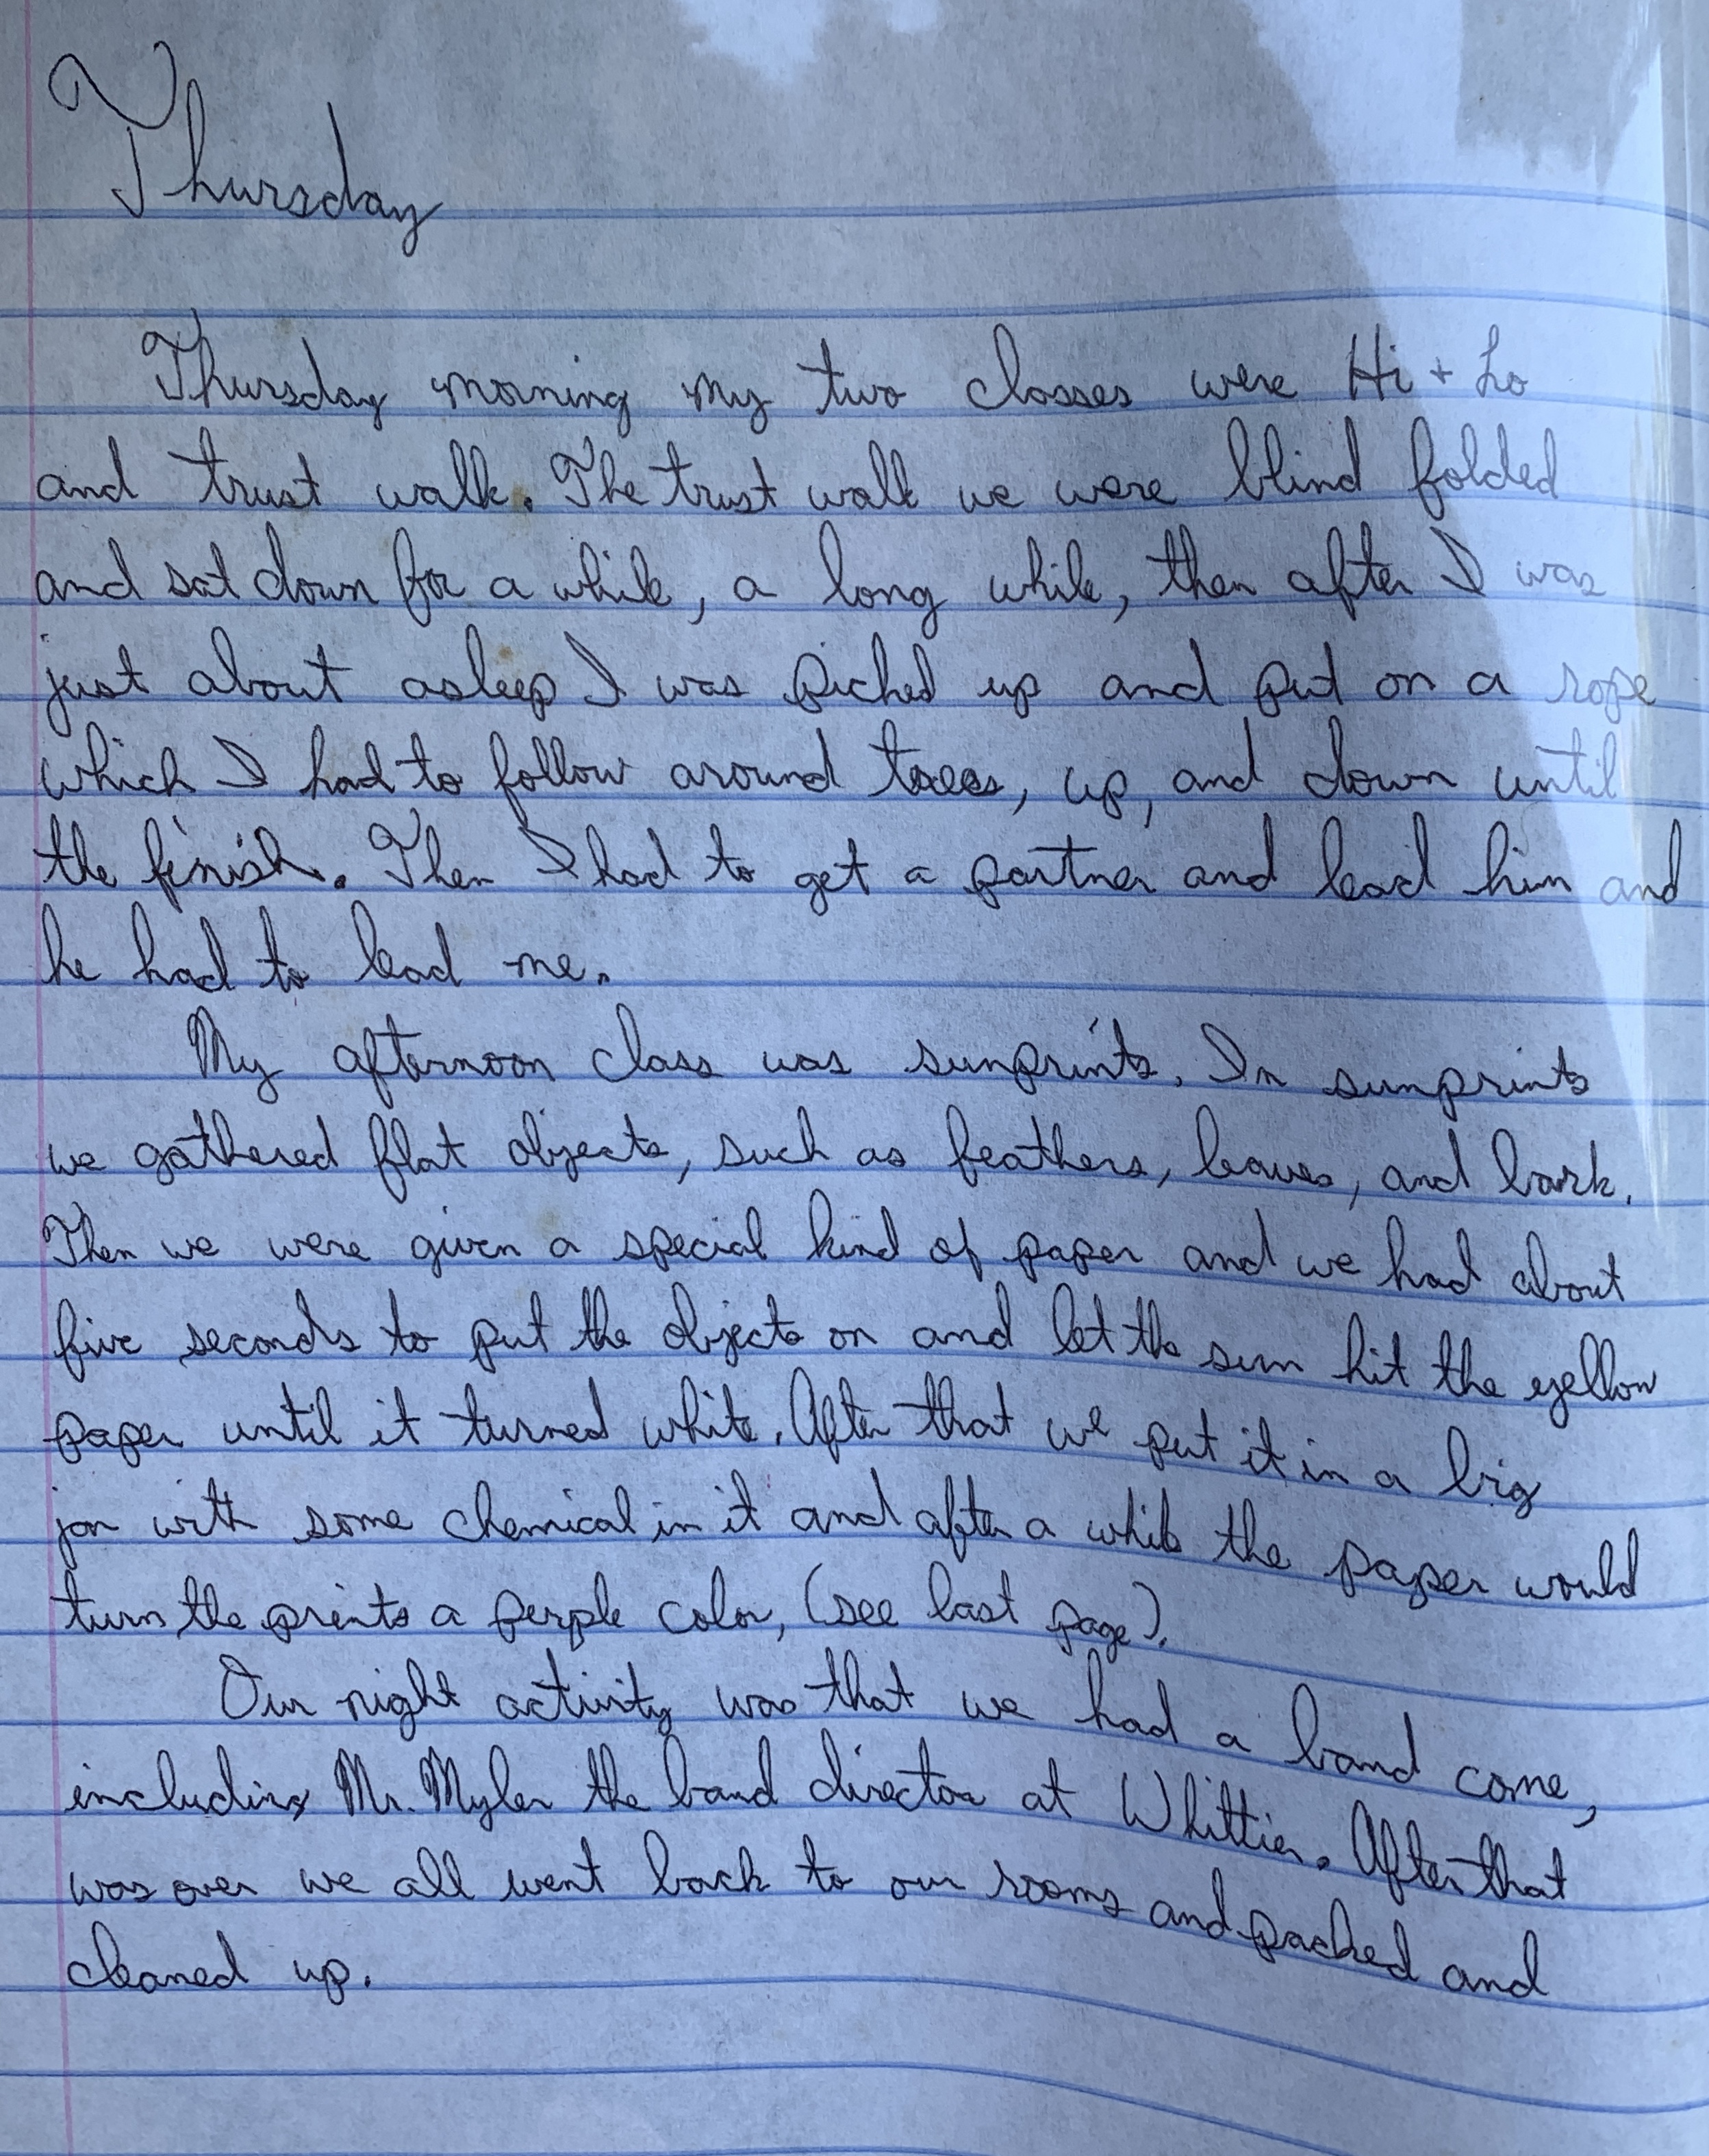 Thursday
Thursday morning my two classes were Hi + Lo
and trust walk. The trust walk we were blind folded
and sat down for a while, a long while, then after I was
just about asleep I was picked up and put on a rope
which I had to follow around trees, up, and down until
the finish. Then I had to get a partner and lead him and
he had to lead me.
My afternoon class was sunprints. In sunprints
we gathered flat objects, such as feathers, leaves, and bark.
Then we were given a special kind of paper and we had about
five seconds to put the objects on and let the sun hit the yellow
paper until it turned white. After that we put it in a big
jar with some chemical in it and after a while the paper would
turn the prints a perple color, (see last page).
Our night activity was that we had a band come,
including Mr. Myler the band director at Whittier. After that
was over we all went back to our rooms and packed and
cleaned up.